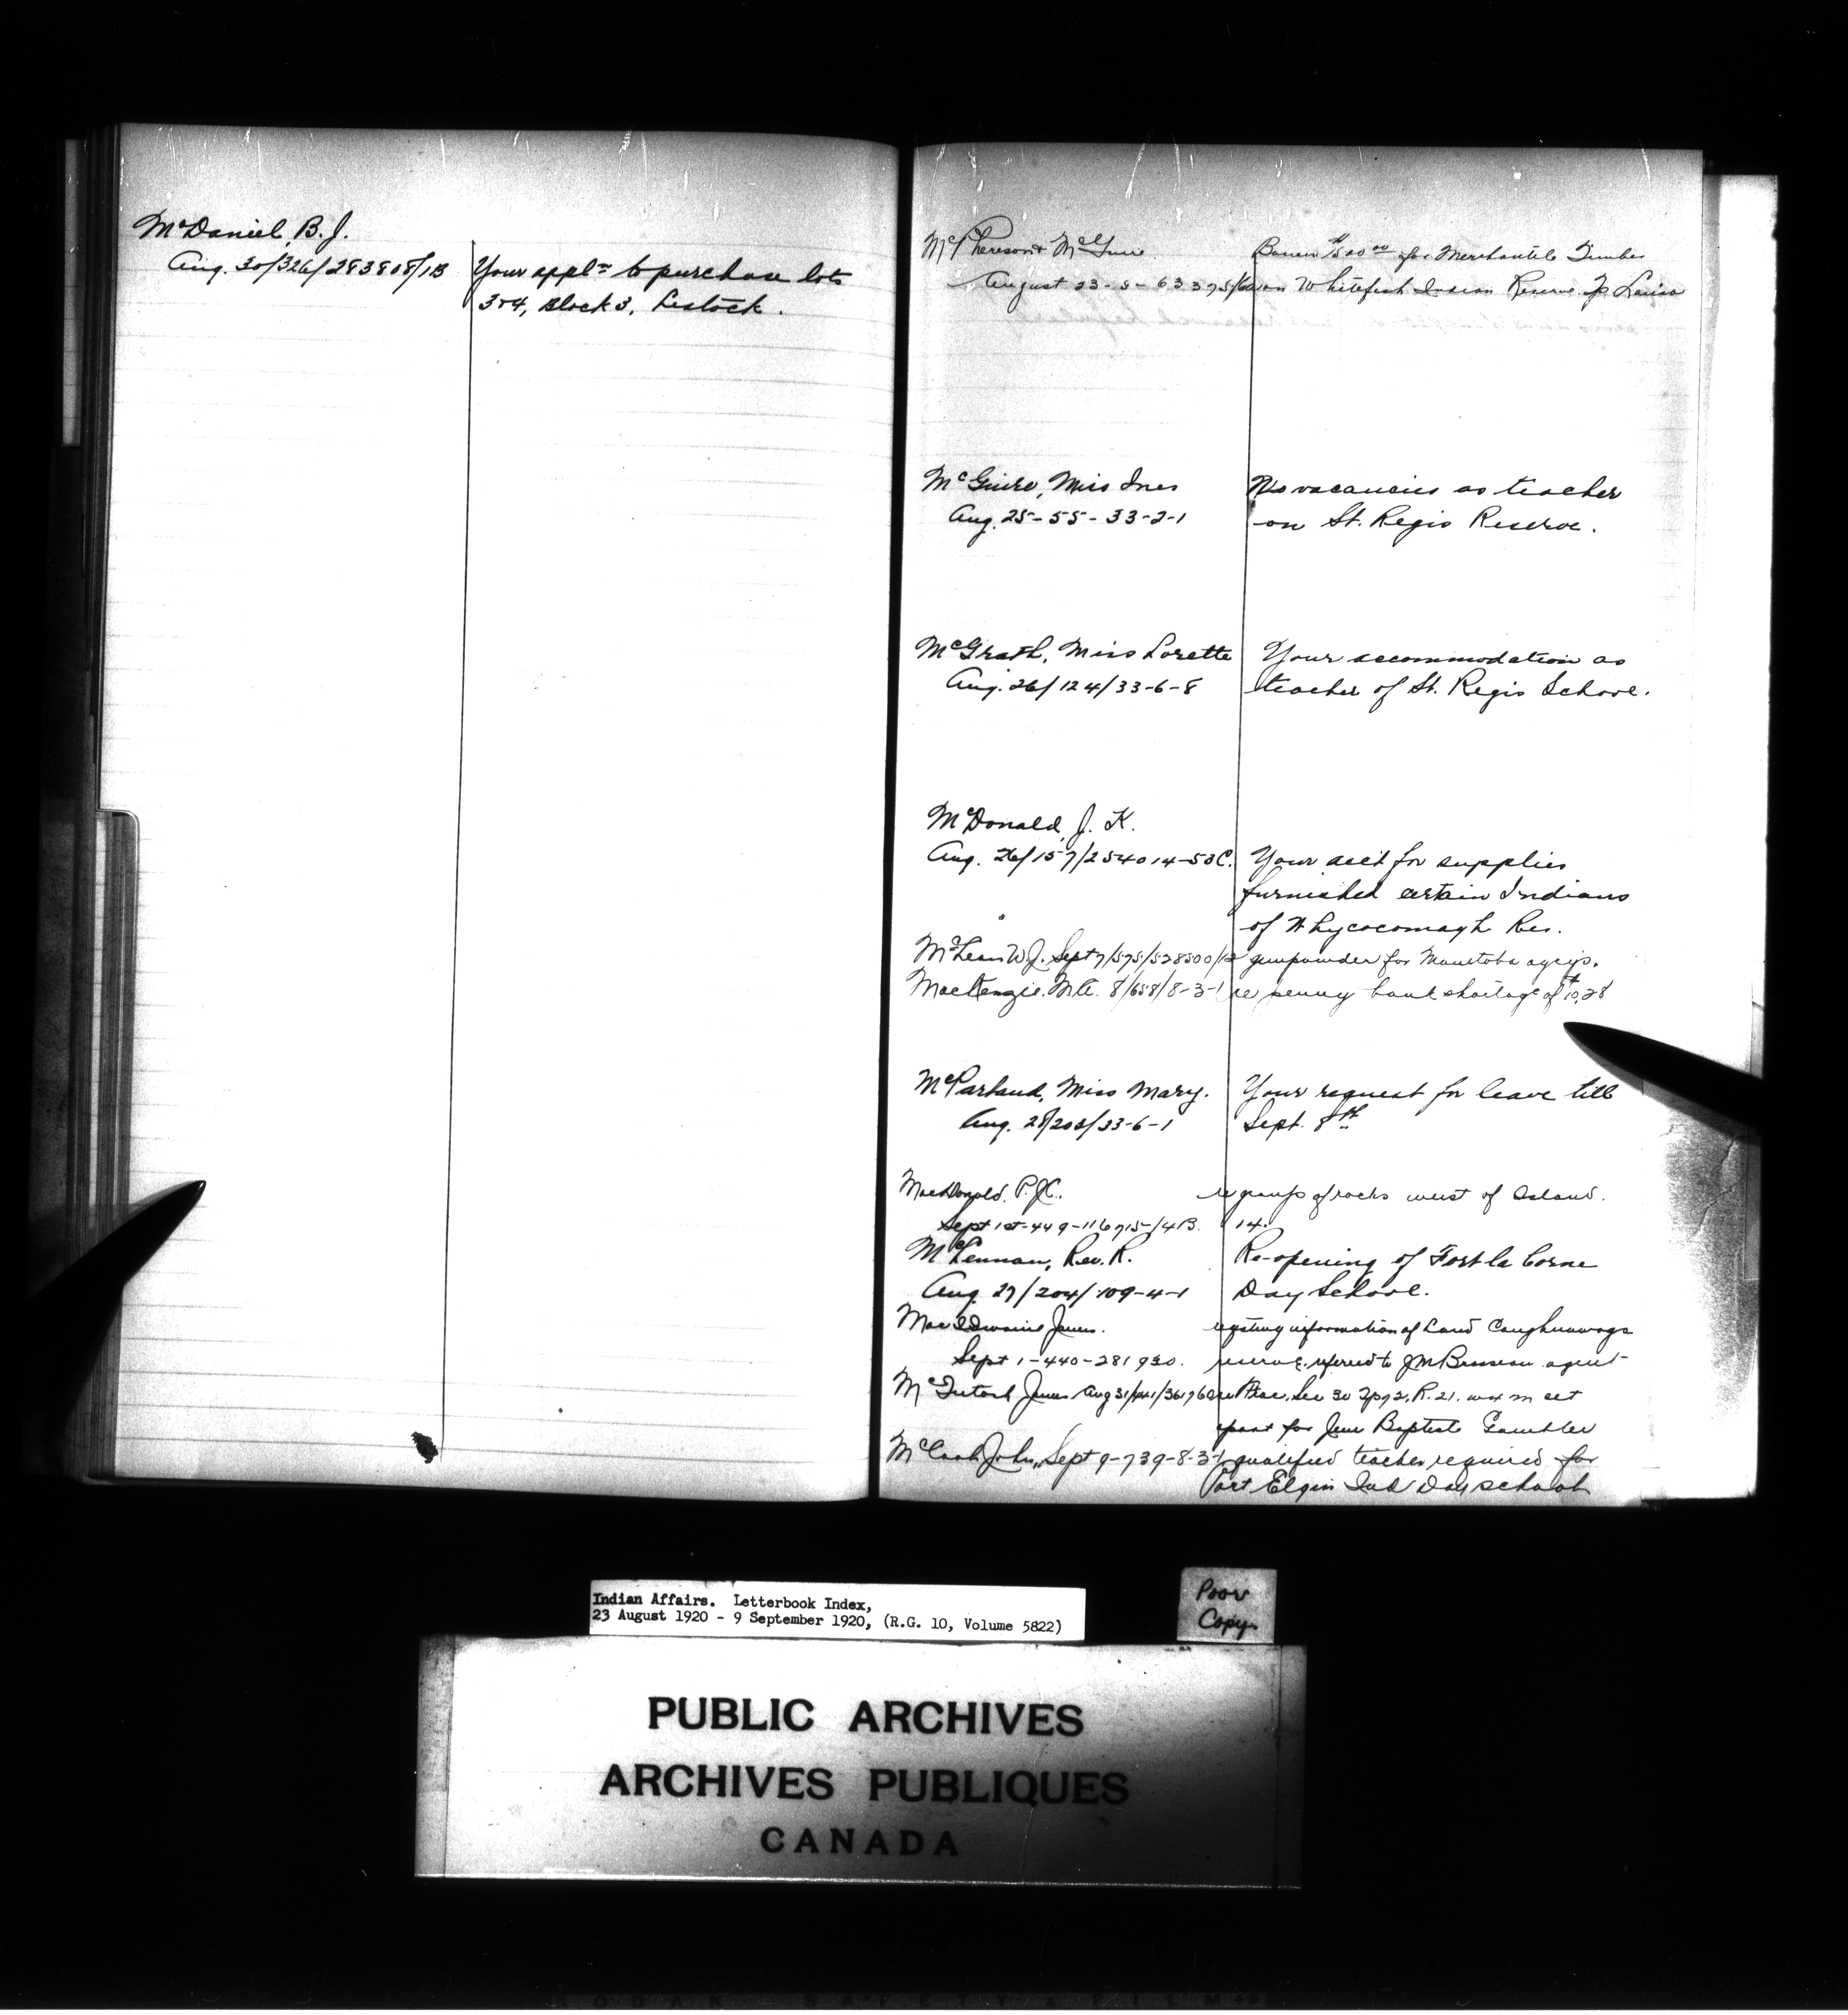 McDaniel, B. J.
Aug. 30/326/283808/1B
Your appln to purchase lots
3&4, Block 3, Lestock.
McPherson & McGuire
Bonus $500.00 for Merchantile Timber
August 23-5-63375/ on Whitefish Indian Reserve Tp Louise
McGuire, Miss Ines
No vacancies as teacher
Aug. 25-55-33-2-1
on St. Regis Reserve.
McGrath, Miss Lorette
Your accommodation as
Aug. 26/124/33-6-8
teacher of St. Regis School.
McDonald, J. K.
Aug. 26/157/254014-53C.
Your acct for supplies
furnished certain Indians
of Whycocomagh Res.
McLean W.J. Sept 7/575/528500/12 gunpowder for Manitoba agcys.
MacKenzie. 8/658/8-3-1 re penny bank shortage of $10.28
McParland, Miss Mary.
Your request for leave till
Aug. 28/202/33-6-1
Sept. 8th
MacDonald. P.
re group of rocks west of Island.
Sept 1st-449-116715-/4B.
14.
McLennan, Rev. R.
Re-opening of Fort la Corne
Aug. 27/204/109-4-1
Day School.
James.
information of Land Caughnawaga
Sept 1-440-281930.
reserve, referred to J M Brosseau agent
McIntosh James Aug 31/441/36176 Sec 30 Tp 72, R. 21. set
apart for Jean Baptiste Gambler
McCook John, Sept 9-739-8-3-1 qualified teacher required for
Port Elgin Ind Day school
Indian Affairs. Letterbook Index,
23 August 1920 - 9 September 1920, (R.G. 10, Volume 5822)
Poor
Copy
PUBLIC ARCHIVES
ARCHIVES PUBLIQUES
CANADA